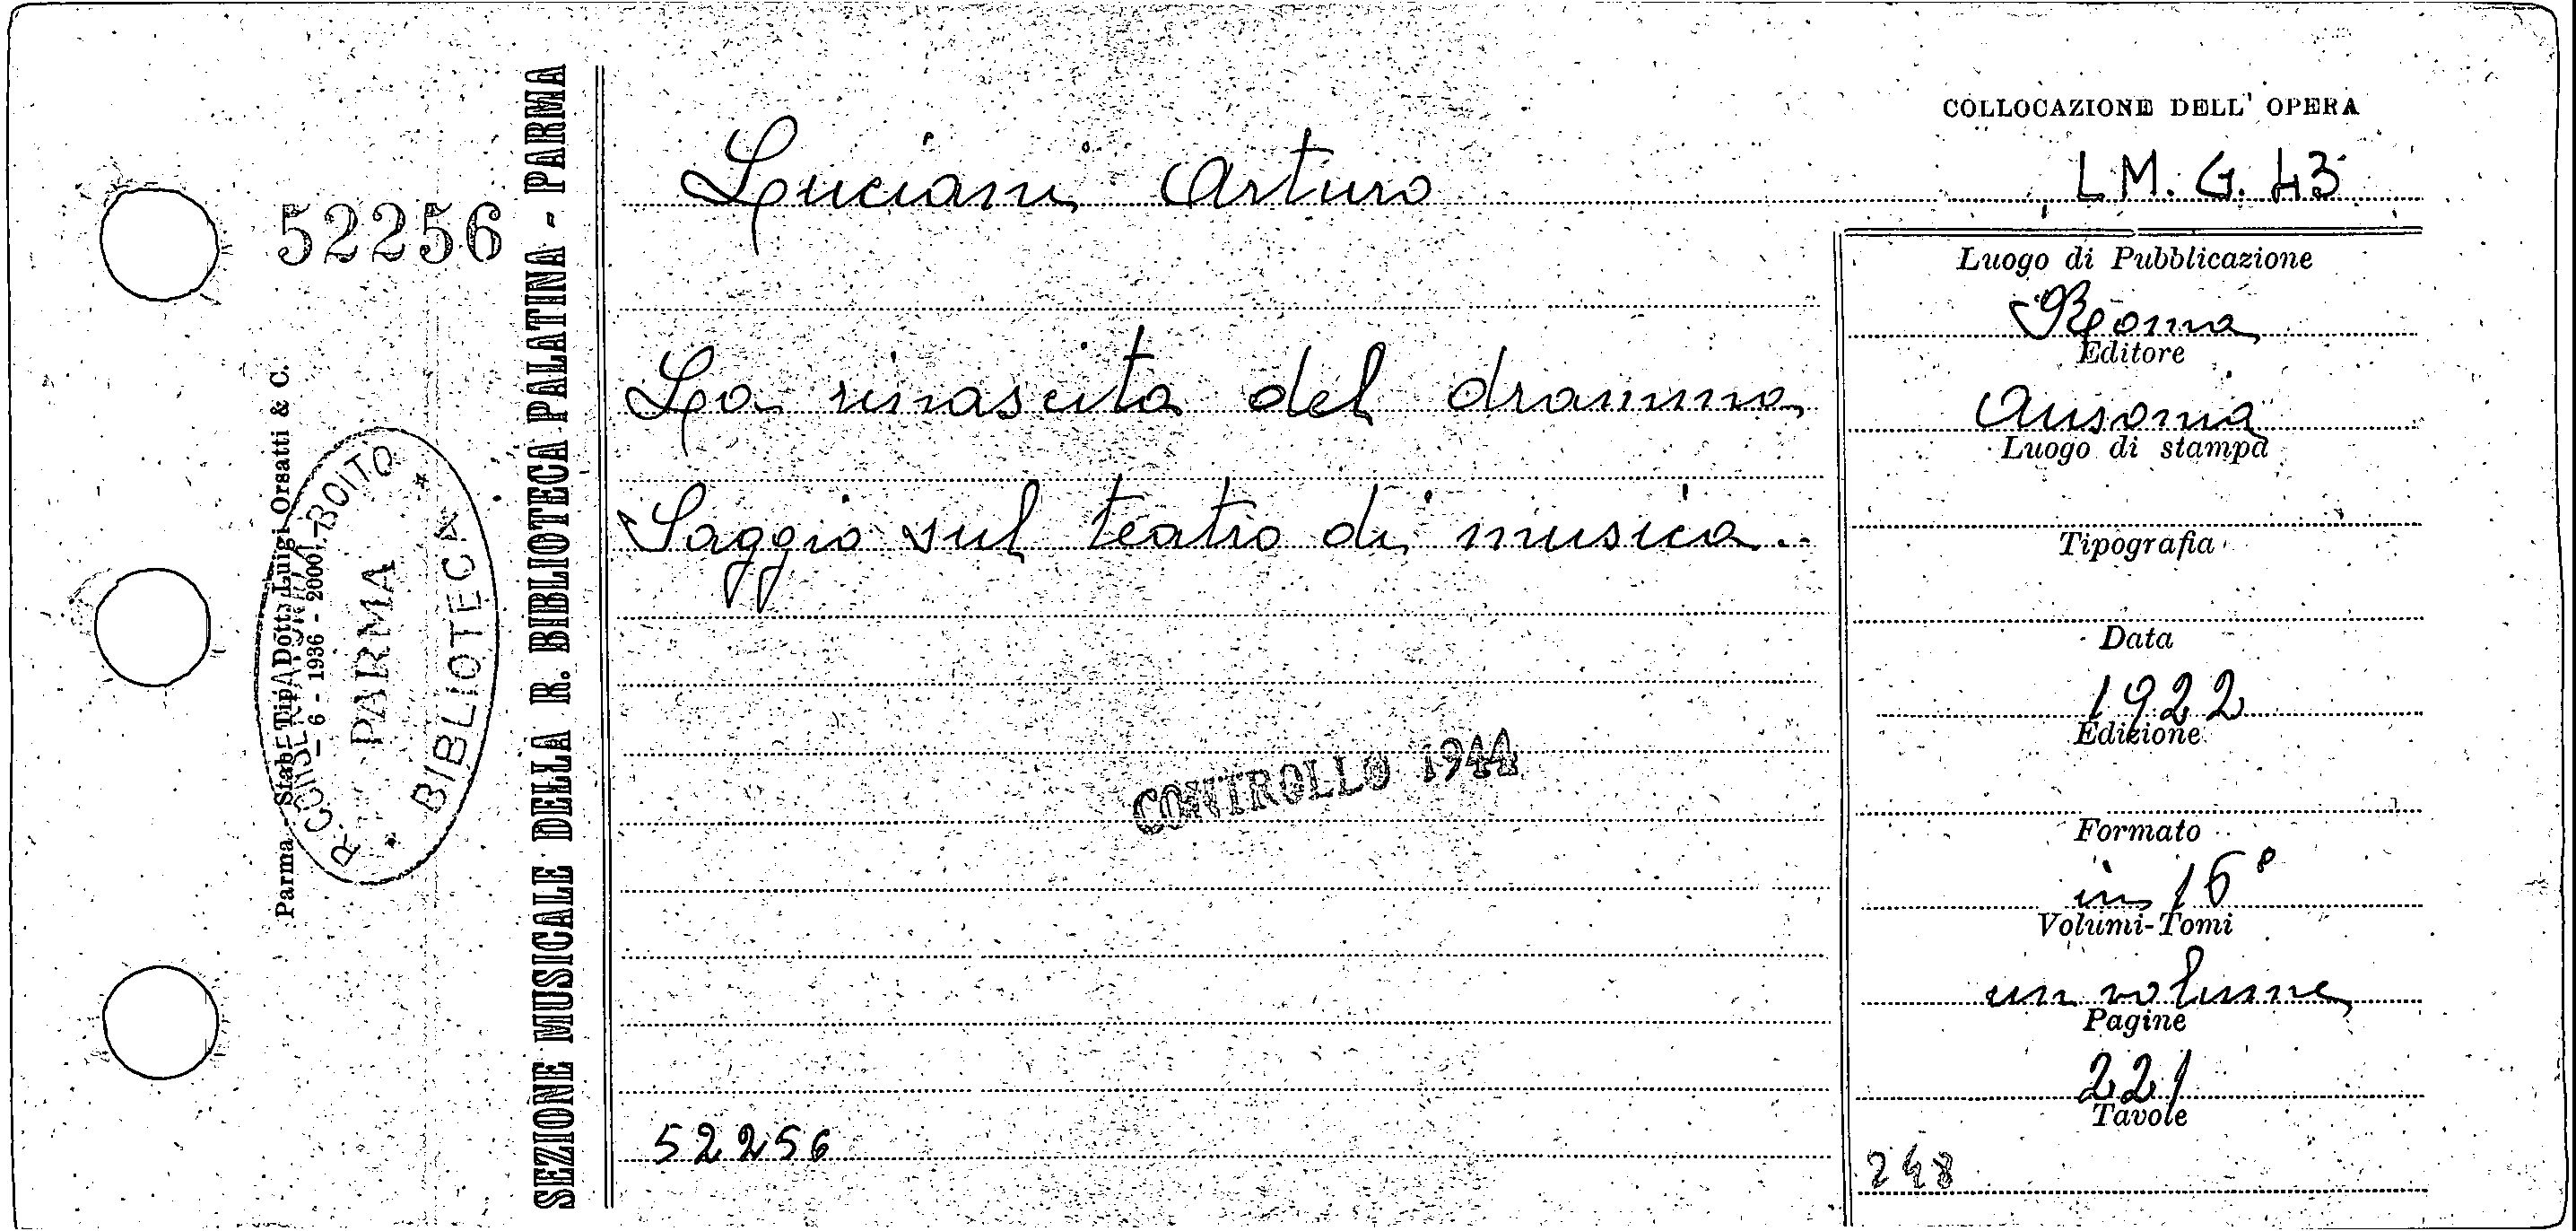 52256
Parma - Stab. Tip. Dott. Luigi Orsatti & C.
6 - 1936 - 2000
R. CONSERVATORIO BOITO
PARMA
BIBLIOTECA
SEZIONE MUSICALE DELLA R. BIBLIOTECA PALATINA - PARMA
Luciani Arturo
La rinascita del dramma
Saggio sul teatro di musica..
CONTROLLO 1944
52256
COLLOCAZIONE DELL' OPERA
L M. G. 43
Luogo di Pubblicazione
Roma
Editore
Ausonia
Luogo di stampa
Tipografia
Data
1922
Edizione
Formato
in 16°
Volumi-Tomi
un volume
Pagine
221
Tavole
248